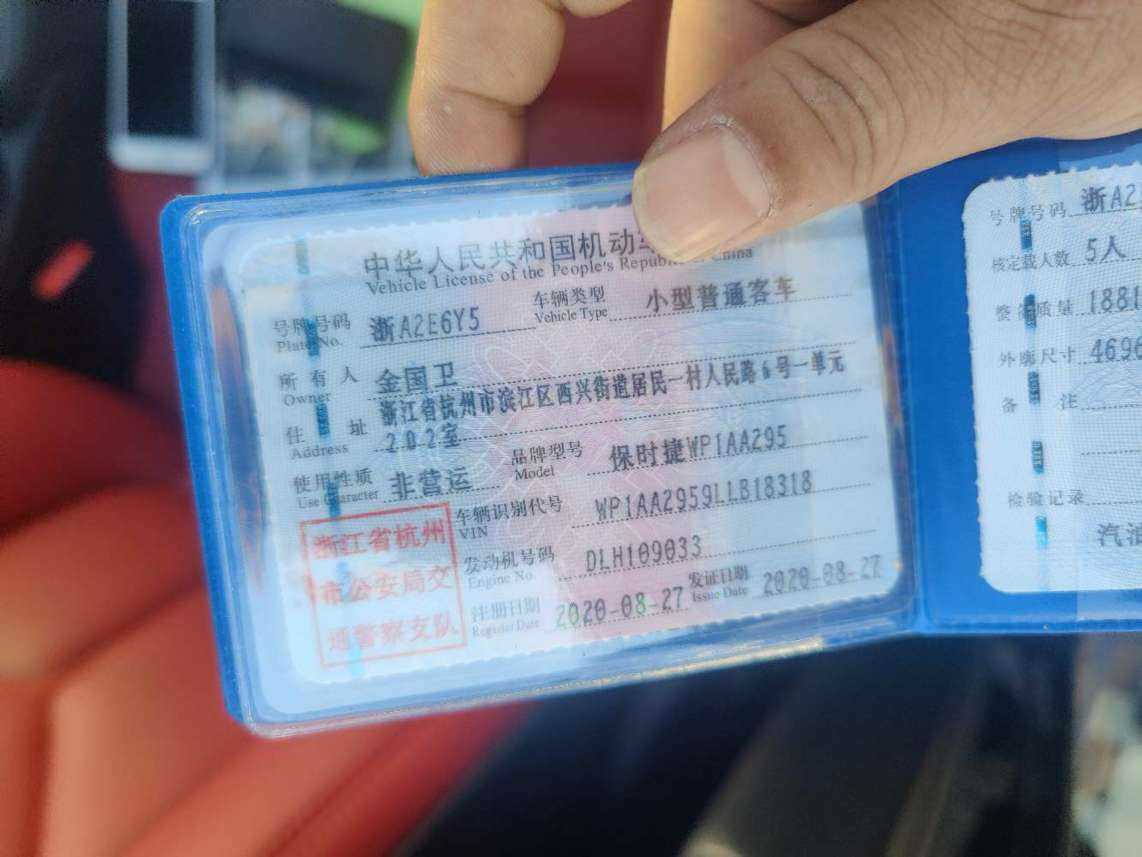 中华人民共和国机动
Vehicle License of the People's Republic of China
号牌号码 浙A2E6Y5 车辆类型 小型普通客车
Plate No. Vehicle Type
所有人 金国卫
Owner
住址 浙江省杭州市滨江区西兴街道居民一村人民路6号一单元
Address 202室
使用性质 非营运 品牌型号 保时捷WP1AA295
Use Character Model
车辆识别代号 WP1AA2959LLB18318
VIN
发动机号码 DLH109033
Engine No.
注册日期 2020-08-27 发证日期 2020-08-27
Register Date Issue Date
浙江省杭州
市公安局交
通警察支队
号牌号码 浙A2
核定载人数 5人
整备质量 188
外廓尺寸 4696
备注
检验记录
汽油